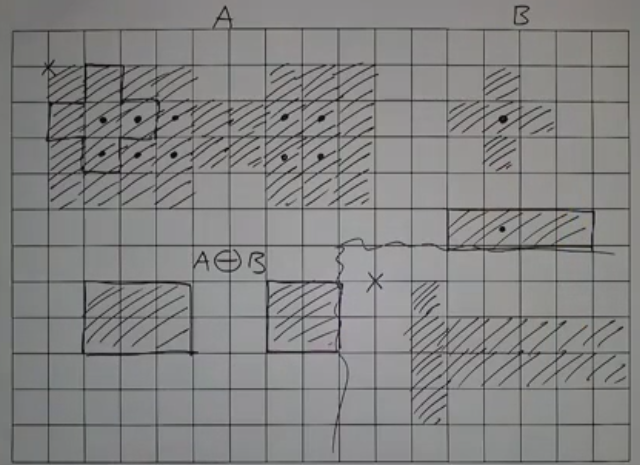 A B
A⊖B